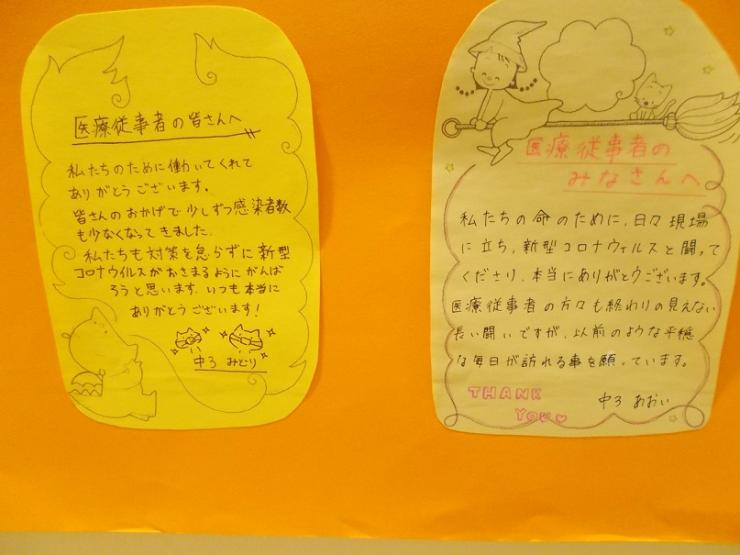 医療従事者の皆さんへ
私たちのために働いてくれて
ありがとうございます。
皆さんのおかげで少しずつ感染者数
も少なくなってきました。
私たちも対策を怠らずに新型
コロナウイルスがおさまるようにがんば
ろうと思います。いつも本当に
ありがとうございます!
中3 みどり
医療従事者の
みなさんへ
私たちの命のために、日々現場
に立ち、新型コロナウィルスと闘って
くださり、本当にありがとうございます。
医療従事者の方々も終わりの見えない
長い闘いですが、以前のような平穏
な毎日が訪れる事を願っています。
THANK
YOU♡
中3 あおい